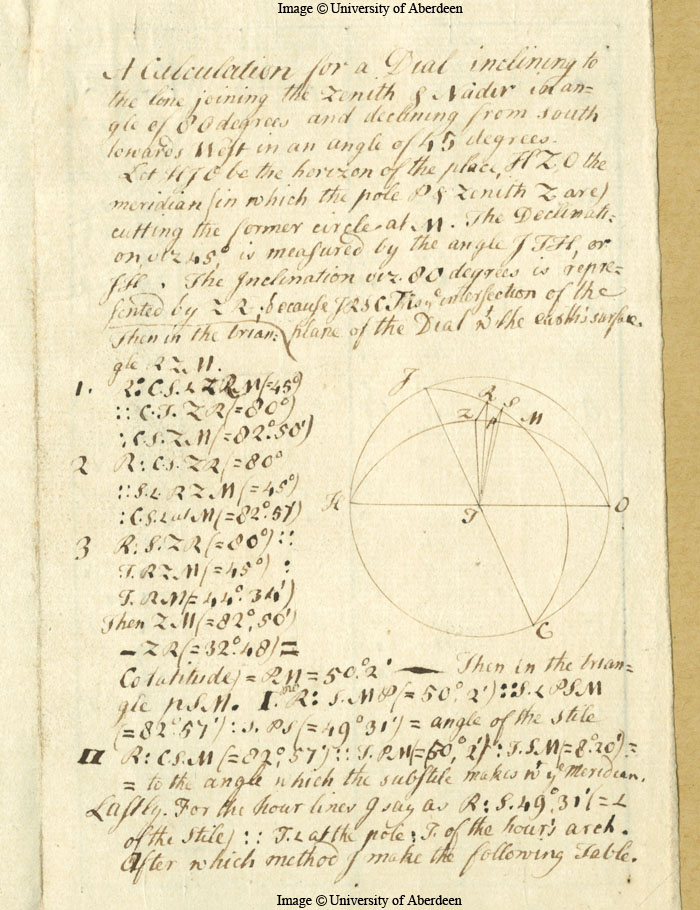 Image © University of Aberdeen
A Calculation for a Dial inclining to
the line joining the Zenith & Nadir in an=
gle of 80 degrees and declining from south
towards West in an angle of 45 degrees.
Let HTO be the horizon of the place, HZO the
meridian (in which the pole P & Zenith Z are)
cutting the former circle at M. The Declinati=
on viz 45° is measured by the angle JTH, or
JH. The Inclination viz. 80 degrees is repre=
sented by ZR; because JRSC is yᵉ intersection of the
plane of the Dial wᵗ the earth's surface.
Then in the trian=
gle RZM.
1. R: C.S.∠ZRM(=45°)
:: C.T.ZR(=80°)
: C.S.ZM(=82°:50')
2 R: C.S.ZR(=80°
:: S.∠RZM(=45°)
: C.S.∠at M(=82°:57')
3 R: S.ZR(=80°) ::
T.RZM(=45°) :
T.RM(=44°:34')
Then ZM(=82°,50')
– ZR(=32°:48) =
Colatitude) = PM = 50°.2' — Then in the trian=
gle PSM. I.ᵐᵒ R: S.MP(=50°.2') :: S.∠PSM
(=82°:57') : S.PS(=49°31') = angle of the stile
II R: C.S.M(=82°,57') :: T.PM(=50°,2') : T.SM(=8°.20') =
= to the angle which the substile makes wᵗ yᵉ meridian.
Lastly. For the hour lines I say as R: S.49°,31'(=∠
of the stile) :: T.∠ at the pole : T. of the hour's arch.
After which method I make the following Table.
J
R
S
Z
P
M
H
T
O
C
Image © University of Aberdeen